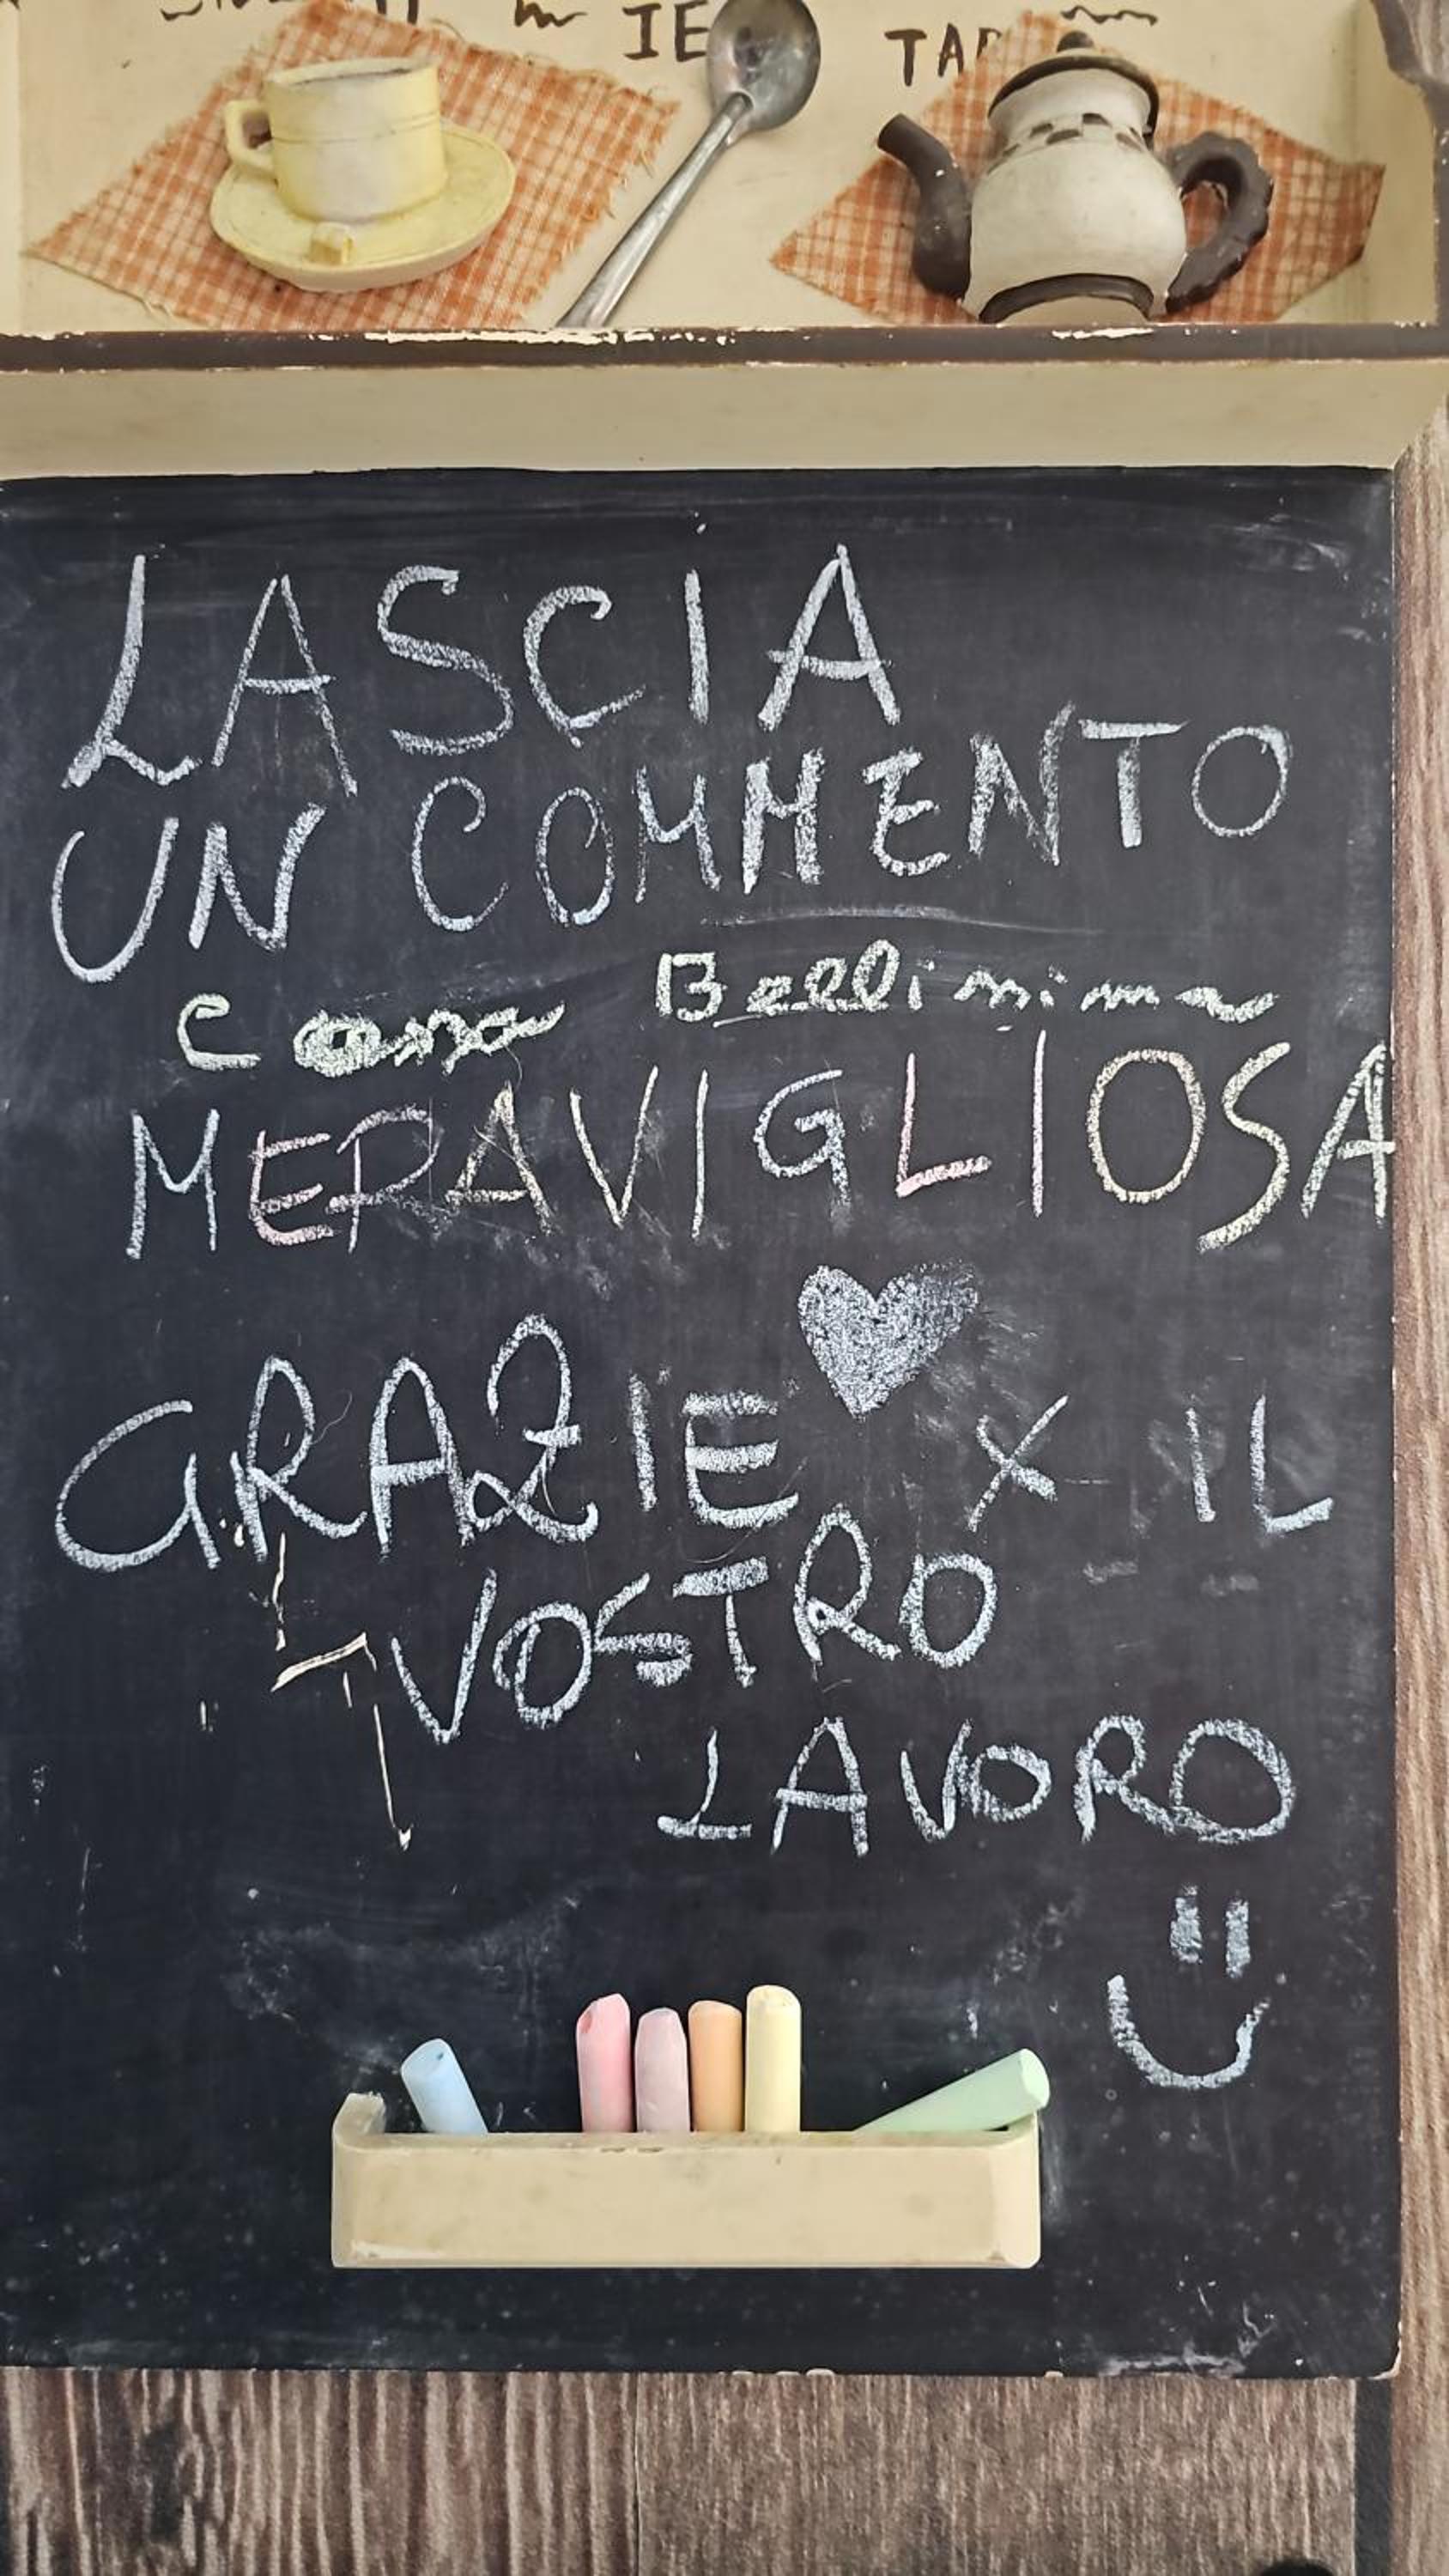 IE
TAR
LASCIA
UN COMMENTO
Casa Bellissima
MERAVIGLIOSA
GRAZIE ♥ X IL
VOSTRO
LAVORO